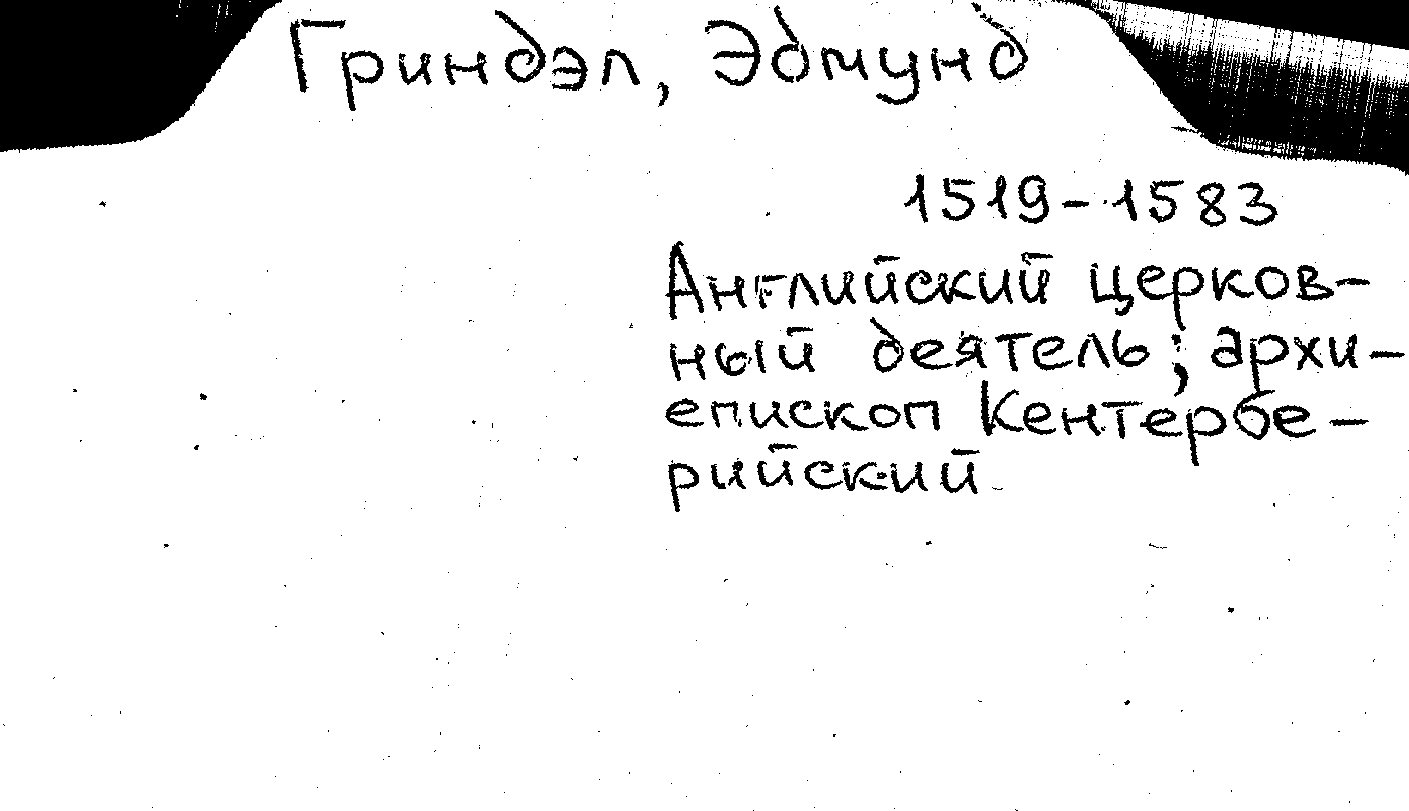 Гриндэл, Эдмунд
1519-1583
Английский церков-
ный деятель; архи-
епископ Кентербе-
рийский